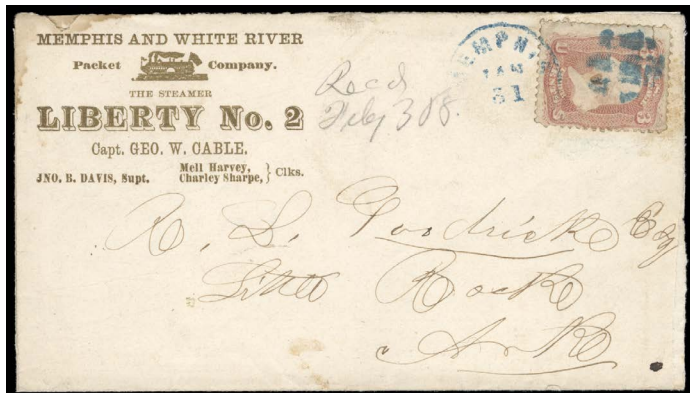 MEMPHIS AND WHITE RIVER
Packet Company.
THE STEAMER
LIBERTY No. 2
Capt. GEO. W. CABLE.
JNO. B. DAVIS, Supt. Mell Harvey, Charley Sharpe, } Clks.
Recd
Feby 3
MEMPHIS
JAN
31
U 3
R. L. Goodrich Esq
Little Rock
Ark